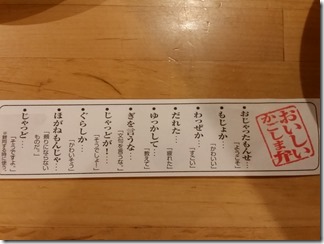 おいしい
かごしま弁
・おじゃったもんせ…
「ようこそ」
・もじょか…
「かわいい」
・わっぜか…
「すごい」
・だれた…
「疲れた」
・ゆっかして…
「教えて」
・ぎを言うな…
「文句を言うな。」
・じゃっどが！…
「そうでしょー」
・ぐらしか…
「かわいそう」
・ほがねもんじゃ…
「頼りにならない
ものだ。」
・じゃっど…
「そうですよ。」